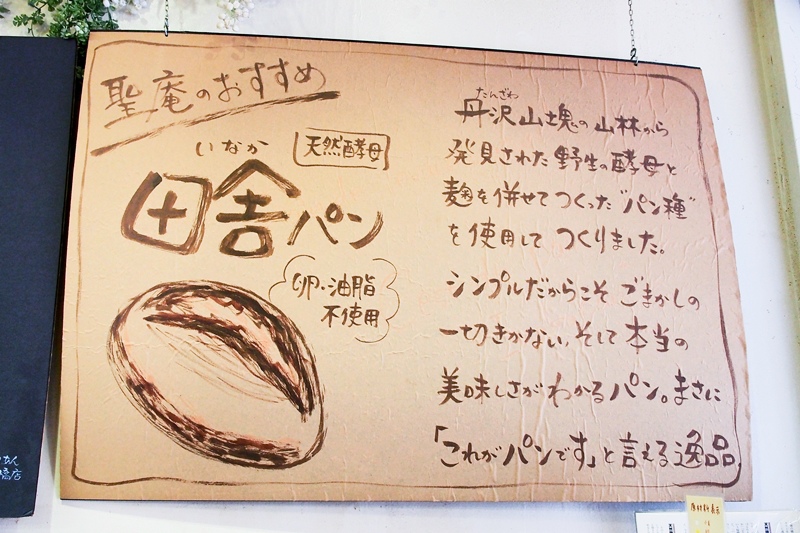 聖庵のおすすめ
いなか
天然酵母
田舎パン
卵・油脂
不使用
たんざわ
丹沢山塊の山林から
発見された野生の酵母と
麹を併せてつくった"パン種"
を使用してつくりました。
シンプルだからこそごまかしの
一切きかない、そして本当の
美味しさがわかるパン。まさに
「これがパンです」と言える逸品。
原材料表示